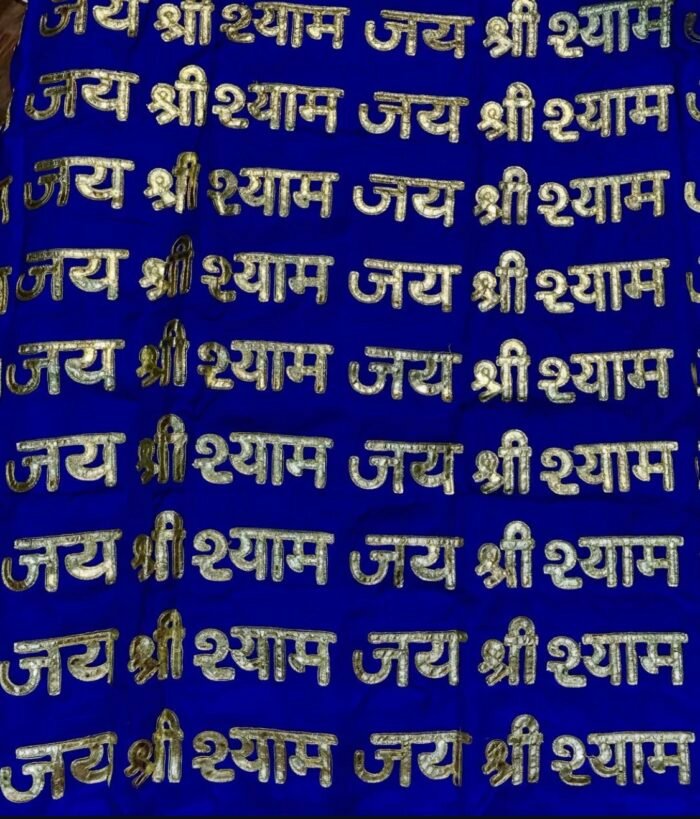 जय श्री श्याम जय श्री श्याम
जय श्री श्याम जय श्री श्याम
जय श्री श्याम जय श्री श्याम
जय श्री श्याम जय श्री श्याम
जय श्री श्याम जय श्री श्याम
जय श्री श्याम जय श्री श्याम
जय श्री श्याम जय श्री श्याम
जय श्री श्याम जय श्री श्याम
जय श्री श्याम जय श्री श्याम